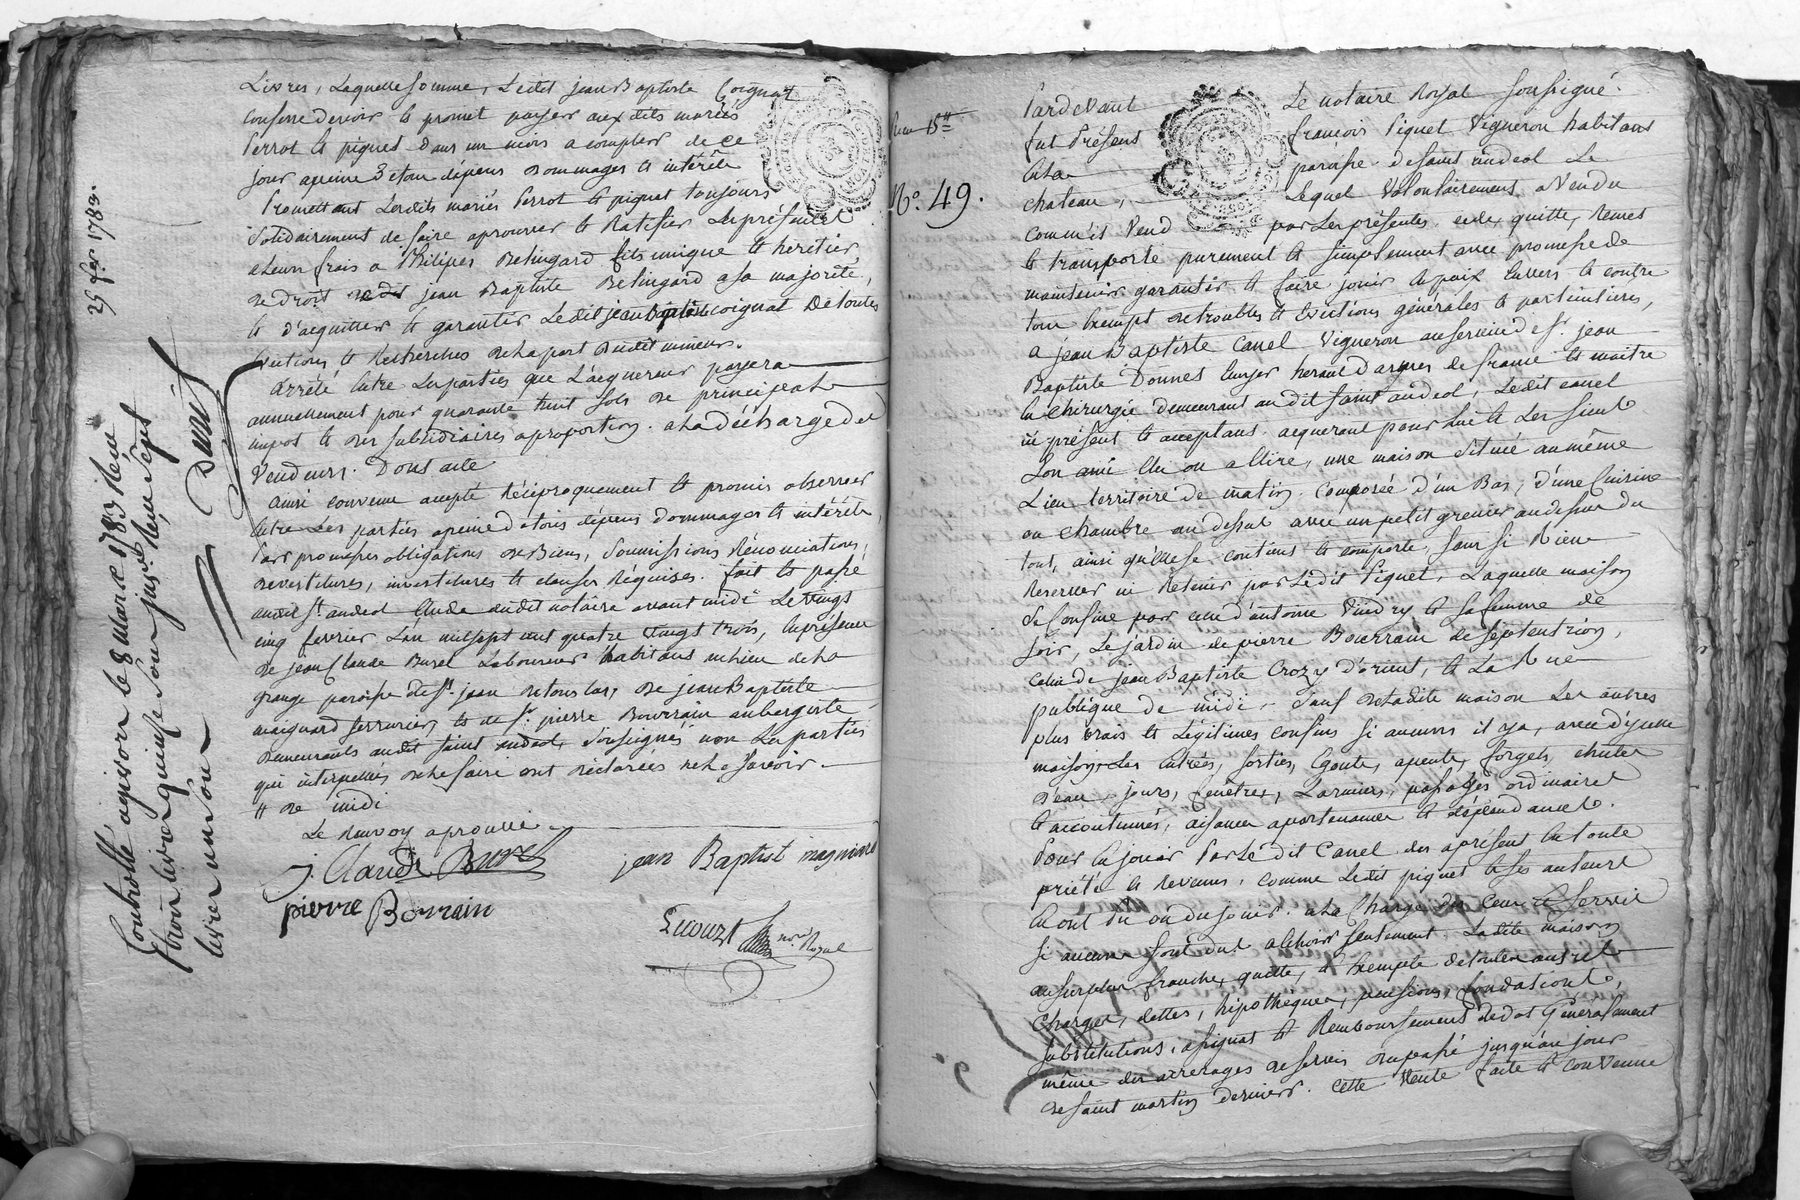 Livres, Laquelle somme, Ledit jean Baptiste Coignat
confesse devoir et promet payer aux dits mariés
Perrot et piquet dans un mois a compter de ce
jour apeine de tous dépens dommages et intérêts
Promettant Lesdits mariés Perrot et piquet toujours
Solidairement de faire aprouver et Ratifier Les présentes
a Leurs frais a Philipes Relingard fils unique et heretier
de droit jean Baptiste Relingard a sa majorité,
et d'acquitter et garantir Ledit jean Baptiste coignat De toutes
Evictions et Recherches de la part dudit mineur.
arrêté entre Les parties que L'acquereur payera
annuellement pour quarante huit sols de principal
impos et des subsidiaires a proportion a la décharge des
Vendeurs. Dont acte
ainsi convenu accepté Réciproquement et promis observer
entre Les parties apeine de tous dépens dommages et intérêts,
Par promesses obligations de Biens, Soumissions Rénonciations,
devestitures, investitures et clauses Réquises. fait et passé
audit St. andeol Etude dudit notaire avant midi Le vingt
cinq fevrier L'an mil sept cent quatre vingt trois, En présence
de jean Claude Burel Laboureur habitant au lieu de la
grange paroisse de St. jean de touslas, de jean Baptiste
maignard serrurier, et de Sr. pierre Bourrain aubergiste
demeurants audit saint andeol, Soussignés non Les parties
qui interpellés de le faire ont déclarées ne le savoir.
// de midi
Le Renvoy aprouvé
j. Claude Burel
jean Baptist magniard
pierre Borrain
no.re Royal
25 fer. 1783.
Controllé a givors le 8 Mars 1783 Reçu
trois livres quinze sous
livre un sou
Reçu 15
No. 49.
Pardevant Le notaire Royal soussigné
fut Présent francois Piquet Vigneron habitant
en la paroisse de saint andeol Le
chateau, Lequel Volontairement a Vendu
comm'il Vend par Les présentes cede, quitte, Remet
et transporte purement et simplement avec promesse de
maintenir garantir et faire jouir en paix Envers et contre
tous Exempt de troubles et Evictions générales et particulieres,
a jean Baptiste Canel Vigneron au service de Sr. jean
Baptiste Donnet Ecuyer heraut d'armes de france et maitre
En chirurgie demeurant au dit saint andeol, Ledit canel
ci présent et acceptant acquerant pour Lui et Les Siens
Son ami Elu ou a Elire, une maison Située au même
Lieu territoire de matin, Composée d'un Bas, d'une Cuisine
ou chambre au dessus avec un petit grenier au dessus du
tout, ainsi qu'elle se contient et comporte, sans si Rien
Reserver ni Retenir par Ledit Piquet, Laquelle maison
Se Confine par celle d'antoine Vindry et sa femme de
soir, Le jardin de pierre Bourrain de séptentrion,
celui de jean Baptiste Crozy d'orient, et La Rue
publique de midi. Sauf de ladite maison Les autres
plus vrais et Légitimes confins Si aucuns il y a, avec d'ycelle
maison Les Entrées, sorties, Egouts, apents, forgets, chutes
d'eau, jours, fenêtres, Larmiers, passages ordinaires
et accoutumés, aisances apartenances et dépendances.
Pour En jouir Par Le dit Canel des aprésent En toute
priété et Revenus, comme Ledit piquet et ses auteurs
En ont Du ou du jouir. a La Charge des Cens et Servis
Si aucuns sont dus a Echoir seulement. Ladite maison
au surplus franche, quitte, et Exempte de toutes autres
charges, dettes, hipothèques, pensions, fondations,
substitutions, assignat et Remboursement de dot Généralement
même des arrerages de servis du passé jusqu'au jour
de saint martin dernier. Cette Vente faite et convenue